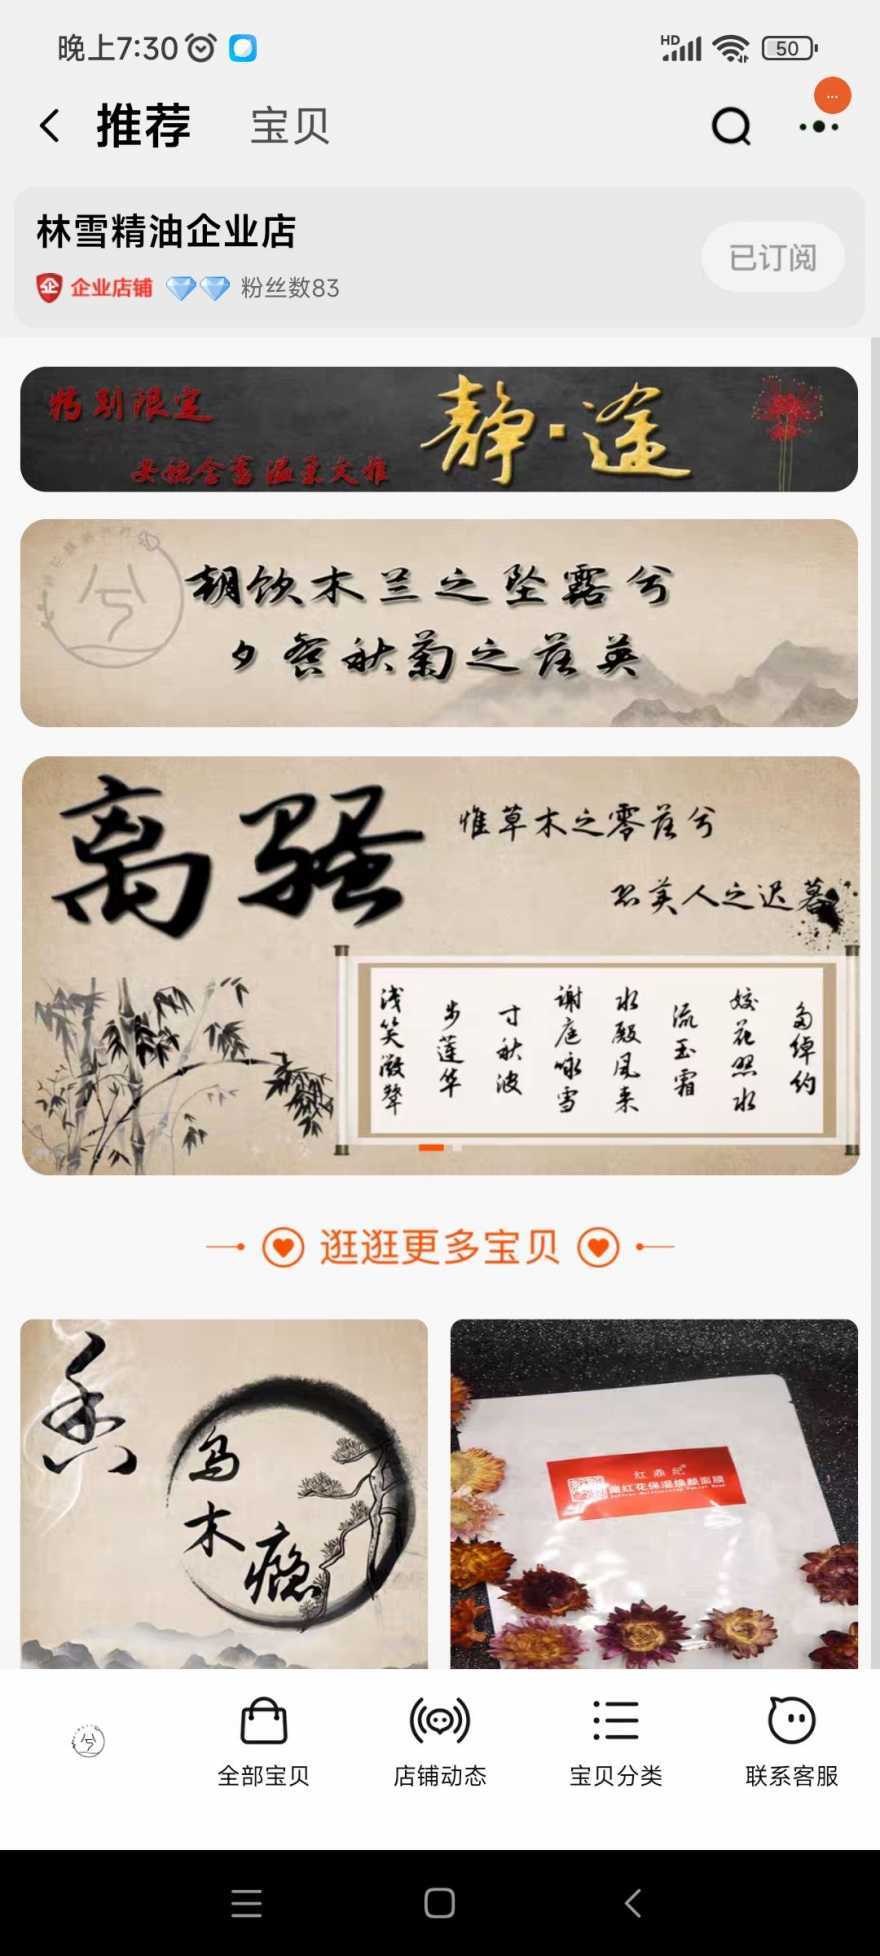 晚上7:30
HD
50
推荐
宝贝
林雪精油企业店
已订阅
企 企业店铺
粉丝数83
特别限定
静·途
安稳含蓄温柔文雅
兮
朝饮木兰之坠露兮
夕餐秋菊之落英
离骚
惟草木之零落兮
恐美人之迟暮
浅笑微颦
步莲华
寸秋波
谢庭咏雪
水殿风来
流玉霜
姣花照水
多绰约
逛逛更多宝贝
香
乌木瘾
红鼎纪®
藏红花保湿焕颜面膜
兮
全部宝贝
店铺动态
宝贝分类
联系客服